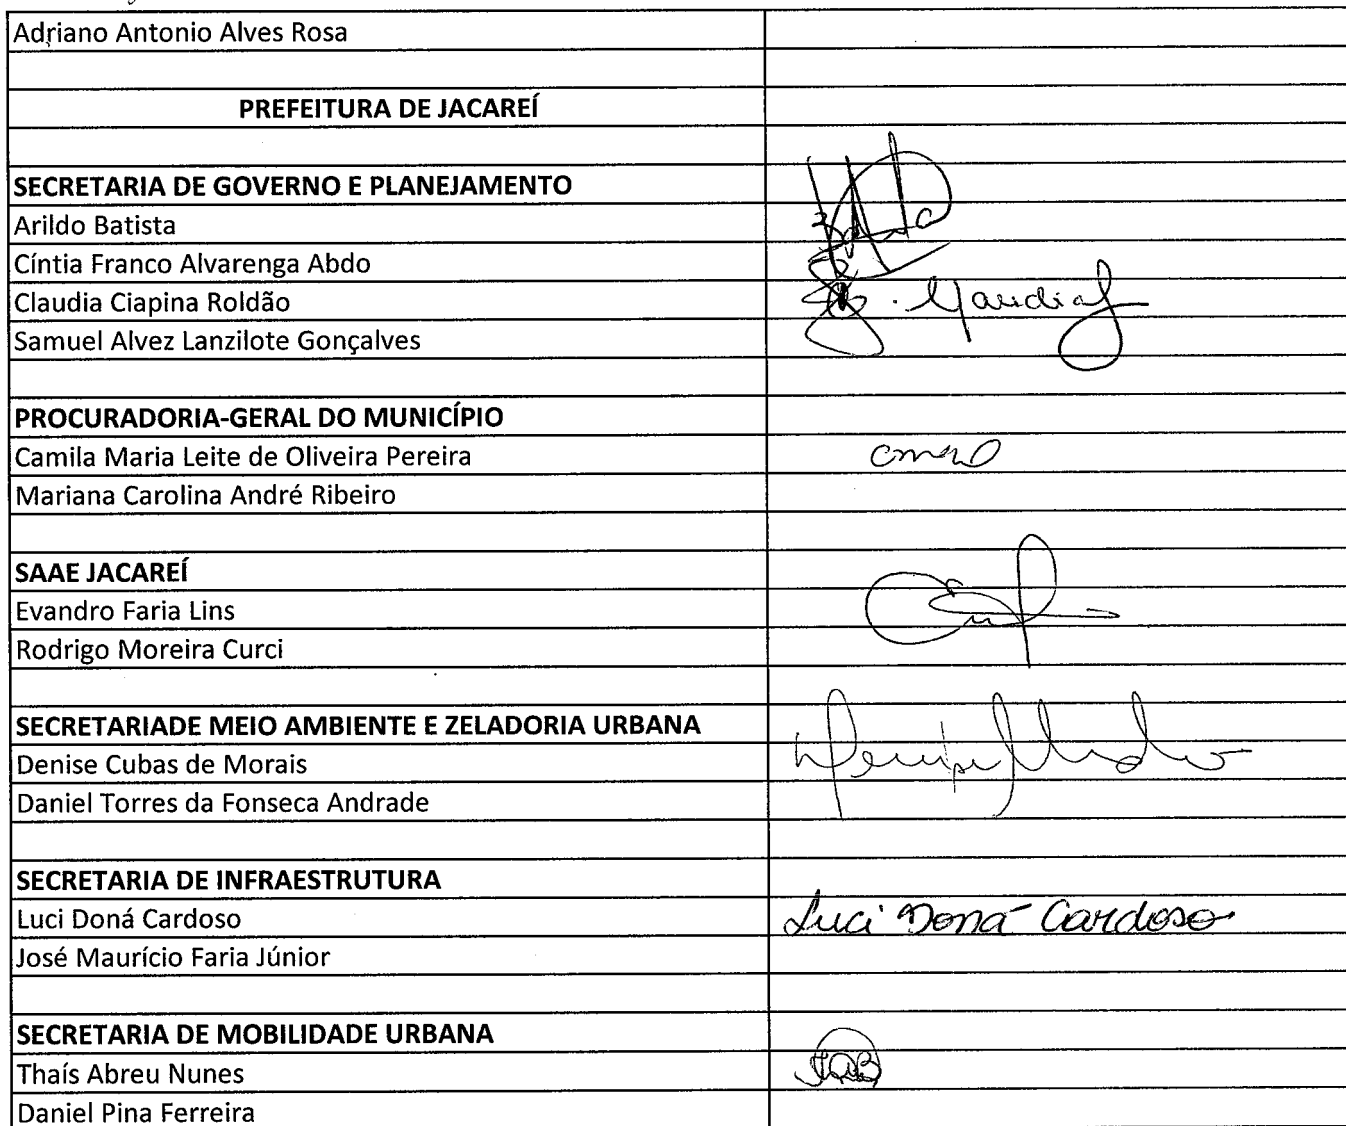 Adriano Antonio Alves Rosa
PREFEITURA DE JACAREÍ
SECRETARIA DE GOVERNO E PLANEJAMENTO
Arildo Batista
Cíntia Franco Alvarenga Abdo
Claudia Ciapina Roldão
Samuel Alvez Lanzilote Gonçalves
PROCURADORIA-GERAL DO MUNICÍPIO
Camila Maria Leite de Oliveira Pereira
Mariana Carolina André Ribeiro
SAAE JACAREÍ
Evandro Faria Lins
Rodrigo Moreira Curci
SECRETARIADE MEIO AMBIENTE E ZELADORIA URBANA
Denise Cubas de Morais
Daniel Torres da Fonseca Andrade
SECRETARIA DE INFRAESTRUTURA
Luci Doná Cardoso Luci Doná Cardoso
José Maurício Faria Júnior
SECRETARIA DE MOBILIDADE URBANA
Thaís Abreu Nunes
Daniel Pina Ferreira